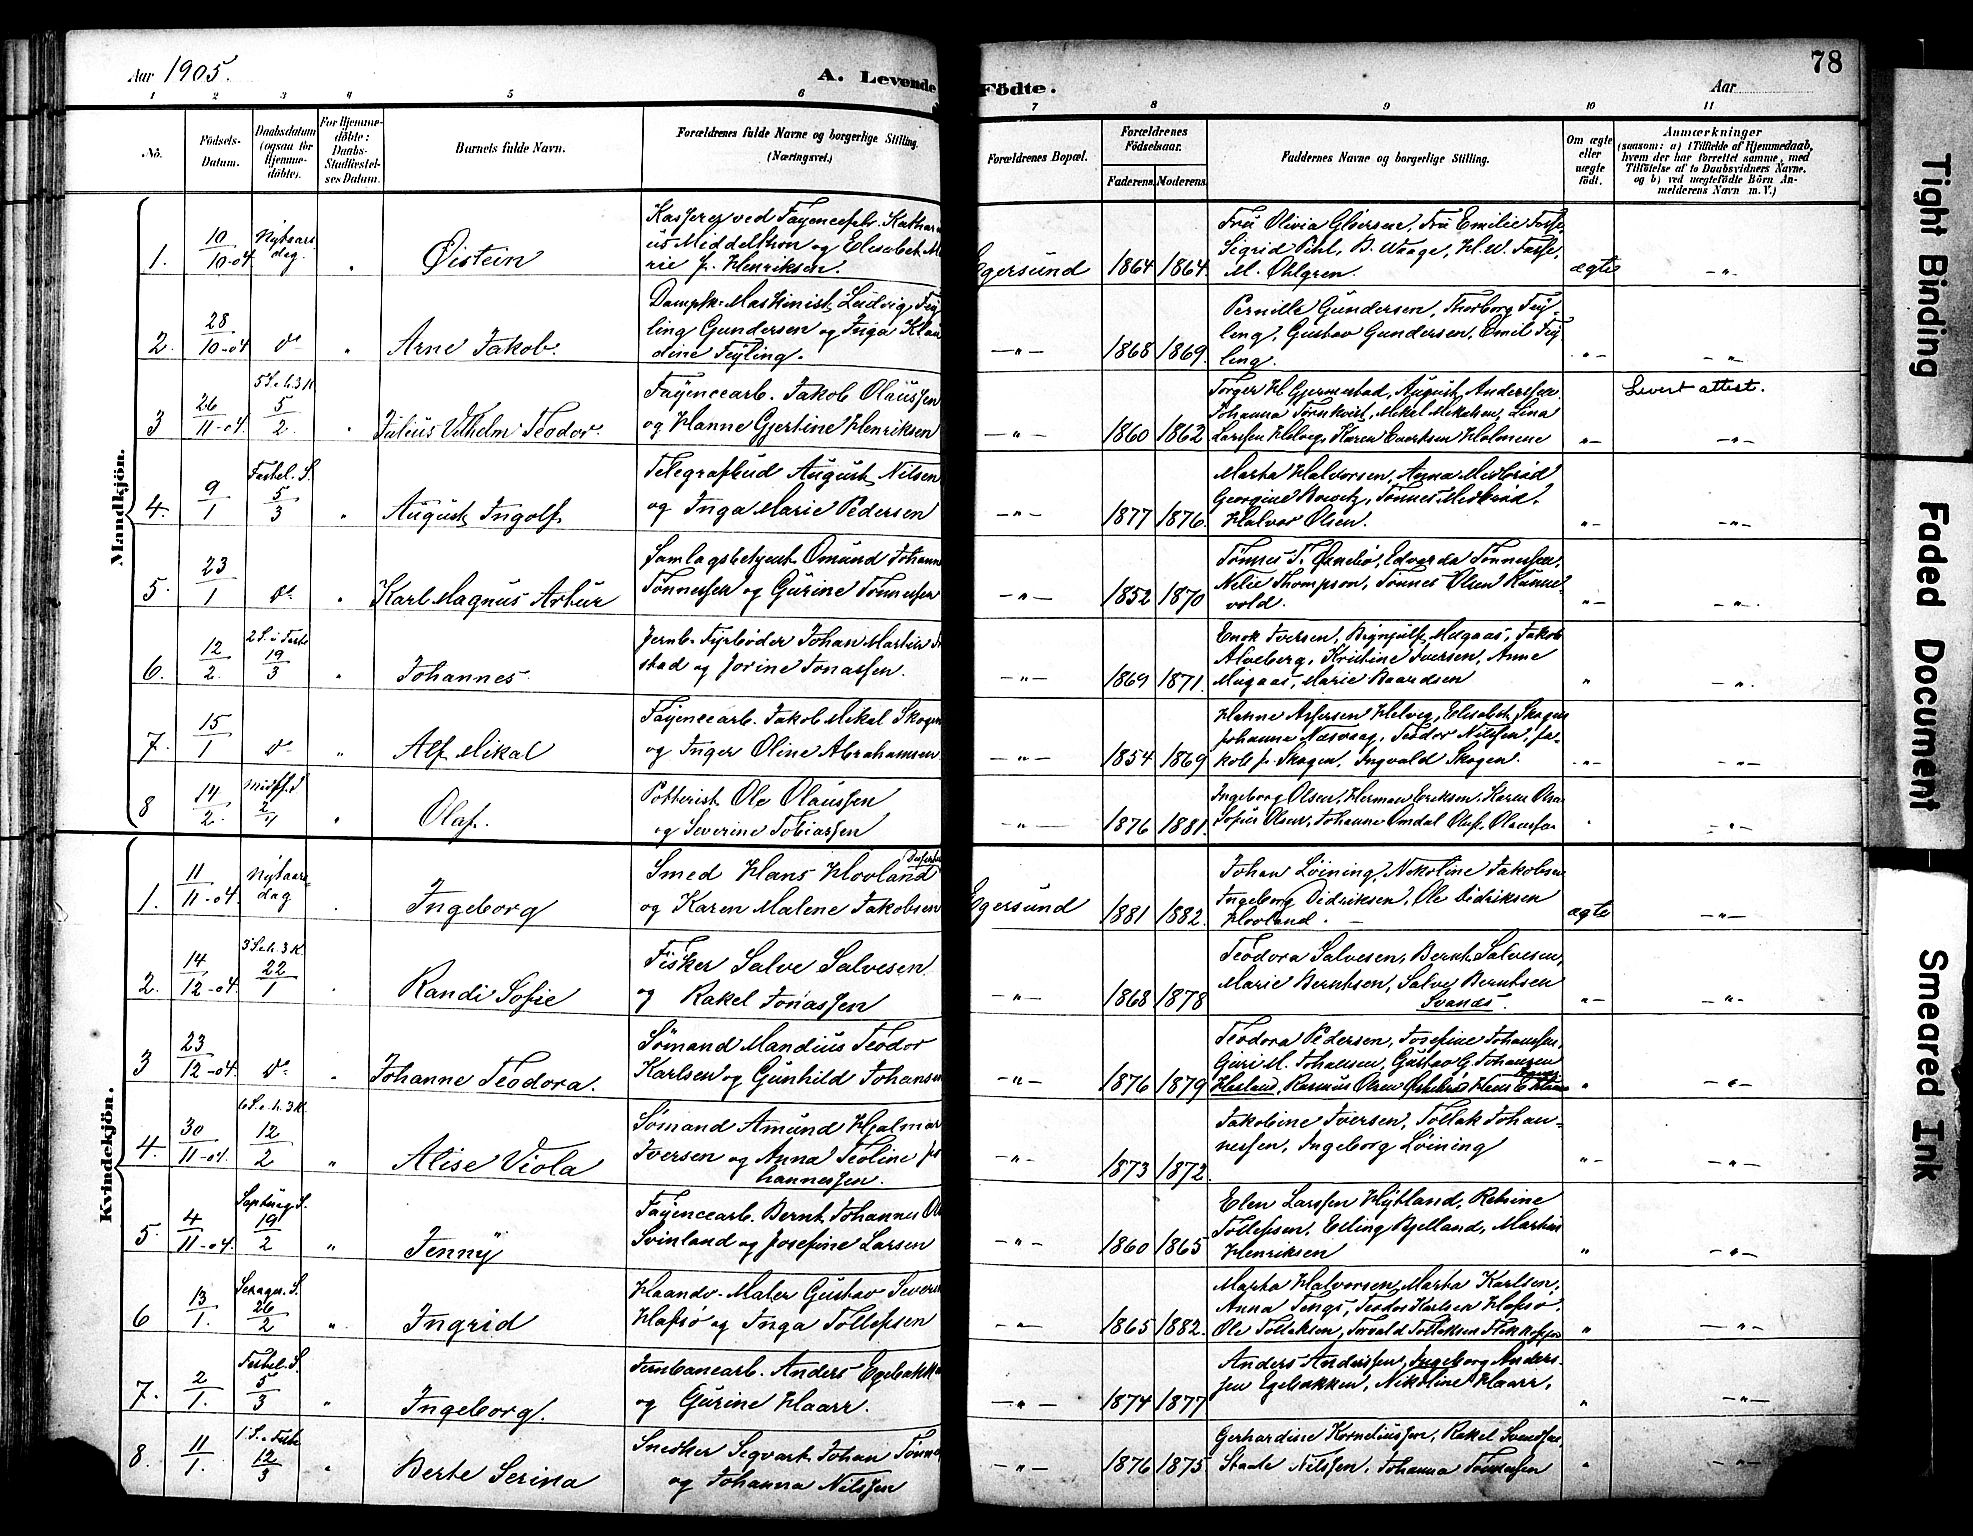 Aar 1905.
A. Levende Födte.
Aar
78
1 2 3 4 5 6 7 8 9 10 11
No.
Födsels-Datum.
Daabsdatum (ogsaa for Hjemme-döbte).
For Hjemme-döbte: Daabs-Stadfæstel-ses Datum.
Barnets fulde Navn.
Forældrenes fulde Navne og borgerlige Stilling. (Næringsvei.)
Forældrenes Bopæl.
Forældrenes Födselsaar.
Faderens. Moderens.
Faddernes Navne og borgerlige Stilling.
Om ægte eller uægte födt.
Anmærkninger
(saasom: a) i Tilfælde af Hjemmedaab,
hvem der har forrettet samme, med
Tilföielse af to Daabsvidners Navne.
og b) ved uægtefödte Börn An-
melderens Navn m. V.)
Mandkjön.
1. 10/10-04 Nytaars dag. " Øistein
Kasserer ved Fayencefabr. Kathar
us Middelthon og Elisabet Ma
rie f. Henriksen.
Egersund 1864 1864.
Fru Olivia Gloersen, Fru Emilie Fasse,
Sigrid Pihl, B. Waage, H. W. Fasse,
M. Ohlgren.
ægte -"-
2. 28/10-04 do " Arne Jakob.
Dampsk. Maskinist Ludvig Fey
ling Gundersen og Inga Klau
dine Feyling.
-"- 1868 1869.
Pernille Gundersen, Thorborg Fey-
ling, Gustav Gundersen, Emil Fey
ling.
"- -"-
3 26/11-04. 5 S. e. h. 3 K. 5/2. " Julius Vilhelm Teodor.
Fayencearb. Jakob Olaussen
og Hanne Gjertine Henriksen
-"- 1860 1862
Torger H Gjermestad, August Anderssen
Johanna Törnkvist, Mikal Mikelsen, Lina
Larssen Helvig, Karen Everksen Holmene
"- Levert attest.
-"-
4. 9/1 Fastel. S. 5/3 " August Ingolf
Telegrafbud August Nilsen
og Inga Marie Pedersen
-"- 1877 1876.
Marta Halvorsen, Anna Midbröd
Georgine Bowitz, Tønnes Midbröd,
Halvor Olsen.
"- -"-
5. 23/1 do " Karl Magnus Artur
Samlagsbetjent Omund Johann
Tønnessen og Gurine Tønnessen
-"- 1852 1870
Nelie Thompson, Tønnes Olsen Runne-
vold.
"- -"-
6. 12/2. 2 S. i Faste 19/3 " Johannes.
Jernb. Fyrbøder Johan Martin
stad og Jorine Jonassen.
-"- 1869 1871.
Enok Iversen, Brynjulf Megaas, Jakob
Alveberg, Kristine Iversen, Anne
Megaas, Marie Baardsen
" -"-
7. 15/1 do " Alf Mikal
Fayencearb. Jakob Mikal Skogen
og Inger Oline Abrahamsen
-"- 1854 1869
Hanne Assersen Helvig, Elisabet Skogen
Johanna Næsvaag, Teodor Nilssen, Ja-
kob J. Skogen, Ingvald Skogen.
"- -"-
8 14/2. " Olaf.
Potterist Ole Olaussen
og Severine Tobiassen
-"- 1876 1881.
Ingeborg Olsen, Herman Eriksen, Karen Olsen
Sofus Olsen, Johanne Omdal Oluf Olaussen
" -"-
Kvindekjön.
1. 11/11-04. Nytaars dag . Ingeborg
Smed Hans Hovland
og Karen Malene Jakobsen
Egersund 1881 1882.
Johan Löining, Nikoline Jakobsen
Ingeborg Didriksen, Ole Didriksen
Hovland.
ægte -"-
2. 14/12-04. 3 S. e. h. 3 K. 22/1 . Randi Sofie
Fisker Salve Salvesen
og Rakel Jonassen
-"- 1868 1878
Teodora Salvesen, Bernt Salvesen,
Marie Berntsen, Salve Berntsen
Svanæs.
"- -"-
3 23/12-04. do " Johanne Teodora.
Sömand Mandius Teodor
Karlsen og Gunhild Johansen
-"- 1876 1879
Teodora Pedersen, Josefine Johanssen,
Guri M. Johansen, Gustav G. Johansen
Hesland, Rasmus Olsen
" -"-
4. 30/11-04. 6 S. e. h. 3 K. 12/2 " Alise Viola
Sömand Amund Hjalmar
Iversen og Anna Teoline Jo
hannessen.
-"- 1873 1872
Jakobine Iversen, Tollak Johan-
nessen, Ingeborg Löining
"- -"-
5. 4/11-04. Septuag. S. 19/2 " Jenny
Fayencearb. Bernt Johannes
Svinland og Josefine Larsen
-"- 1860 1865
Elen Larssen Hytland, Retrine
Tollefsen, Elling Bjelland, Martin
Henriksen
" -"-
6 13/1. Sexages. S. 26/2 " Ingrid
Haandv. Maler Gustav Severin
Hafsö og Inga Tollefsen
-"- 1865 1882.
Marta Halvorsen, Marta Karlsen,
Anna Tengs, Teodor Karlsen Hafsö,
Ole Tollaksen, Torvald Tollaksen
" -"-
7. 2/1. Fastel. S. 5/3 " Ingeborg.
Jernbanearb. Anders Egebakken
og Gurine Haarr.
-"- 1874 1877
Anders Anderssen, Ingeborg Anders-
sen Egebakken, Nikoline Haarr,
" -"-
8. 11/1. 1 S. i Faste 12/3 " Berte Serina
Snedker Segvart Johan Tønnes
og Johanna Nilssen
-"- 1876 1875
Gerhardine Korneliussen, Rakel Svendsen,
Staale Nilssen, Johanna Tønnessen
" -"-
Tight Binding
Faded Document
Smeared Ink